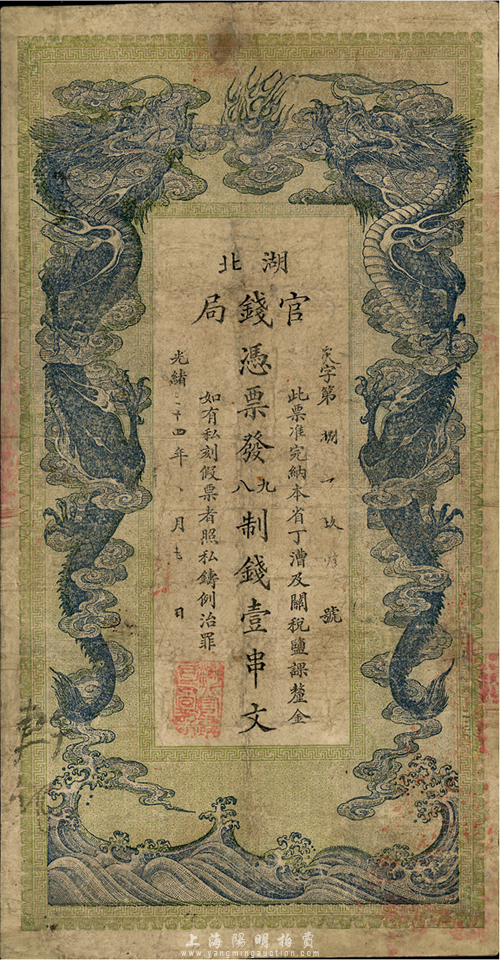 湖北
官錢局
字第捌 玖 號
此票准完納本省丁漕及關稅鹽課釐金
憑票發九八制錢壹串文
如有私刻假票者照私鑄例治罪
光緒二十四年 月 日
上海陽明拍賣
www.yangmingauction.com